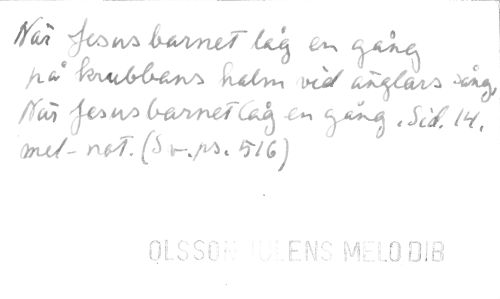 När Jesus barnet låg en gång
på krubbans halm vid änglars sång,
När Jesus barnet låg en gång. Sid. 14.
mel-not. (Sv. ps. 516)
OLSSON JULENS MELODIB